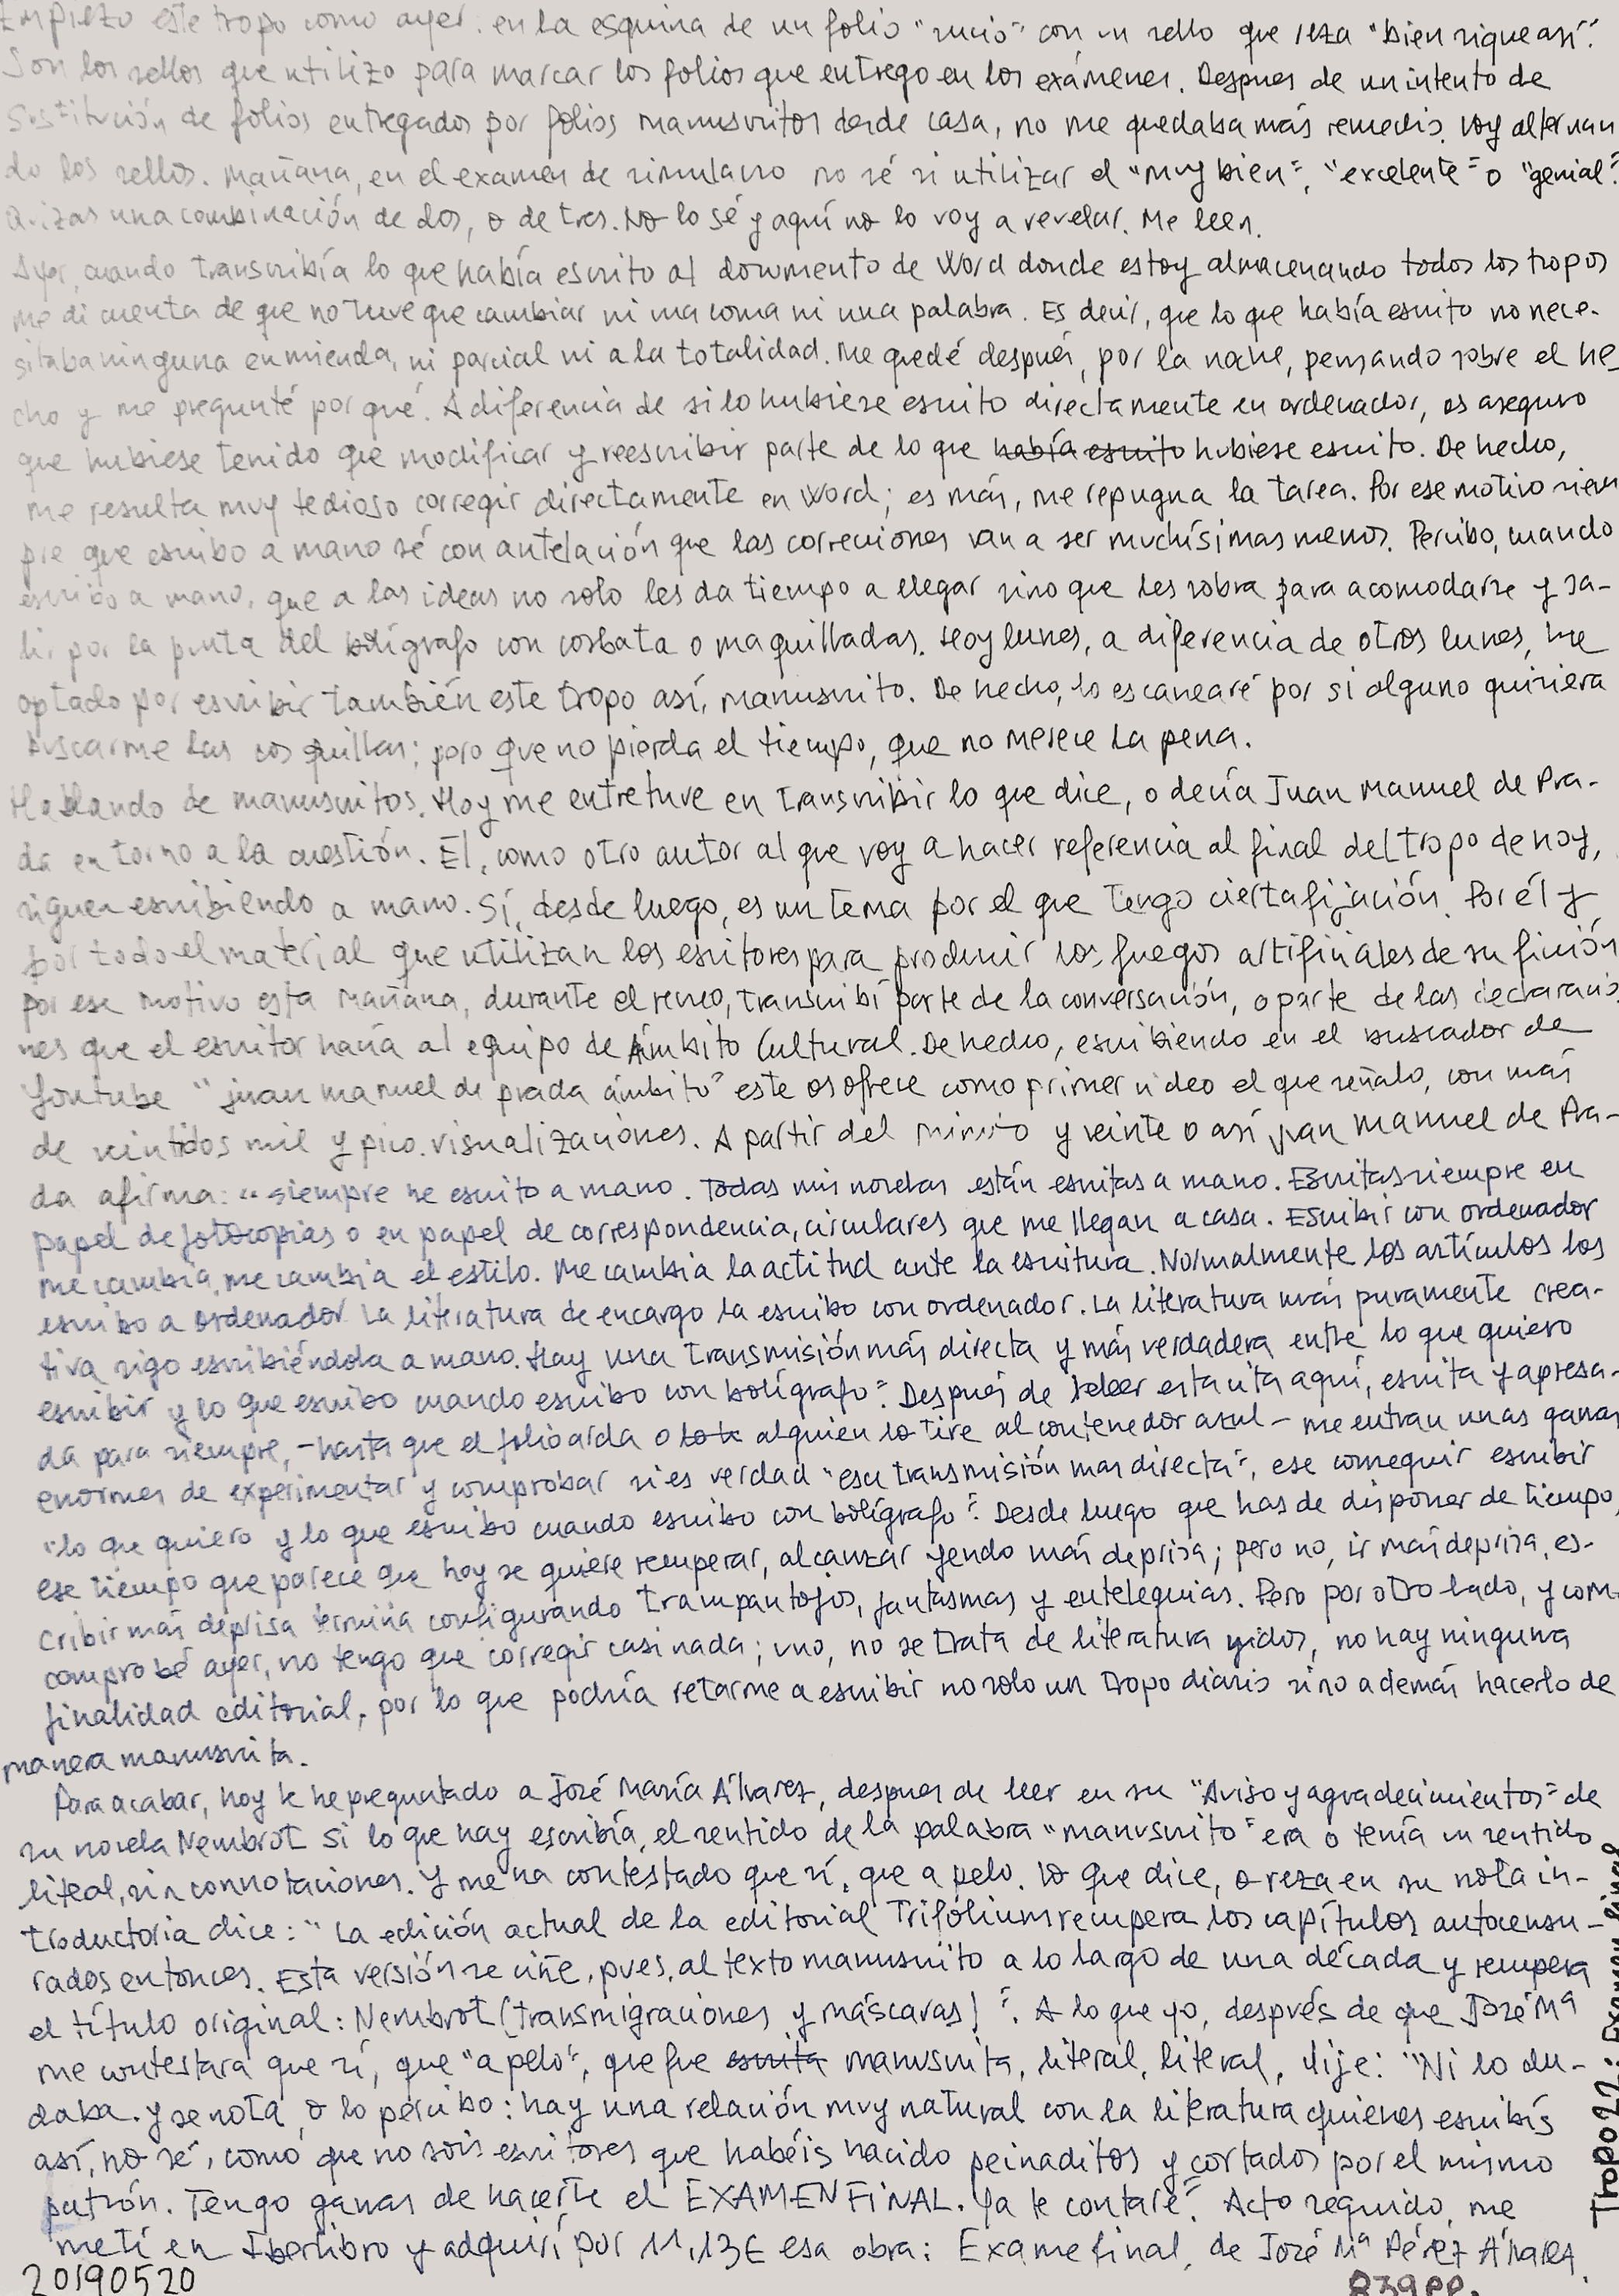 Empiezo este tropo como ayer: en la esquina de un folio "sucio" con un sello que reza "bien sigue así".
Son los sellos que utilizo para marcar los folios que entrego en los exámenes. Despues de un intento de
sustitución de folios entregados por folios manuscritos desde casa, no me quedaba más remedio. Voy alternan
do los sellos. Mañana, en el examen de simulacro no sé si utilizar el "muy bien", "excelente" o "genial".
Quizas una combinación de dos, o de tres. No lo sé y aquí no lo voy a revelar. Me leen.
Ayer, cuando transcribía lo que había escrito al documento de Word donde estoy almacenando todos los tropos
me di cuenta de que no tuve que cambiar ni una coma ni una palabra. Es decir, que lo que había escrito no nece-
sitaba ninguna enmienda, ni parcial ni a la totalidad. Me quedé después, por la noche, pensando sobre el he-
cho y me pregunté por qué. A diferencia de si lo hubiese escrito directamente en ordenador, os aseguro
que hubiese tenido que modificar y reescribir parte de lo que había escrito hubiese escrito. De hecho,
me resulta muy tedioso corregir directamente en Word; es más, me repugna la tarea. Por ese motivo siem
pre que escribo a mano sé con antelación que las correciones van a ser muchísimas menos. Percibo, cuando
escribo a mano, que a las ideas no solo les da tiempo a llegar sino que les sobra para acomodarse y sa-
lir por la punta del bolígrafo con corbata o maquilladas. Hoy lunes, a diferencia de otros lunes, he
optado por escribir también este tropo así, manuscrito. De hecho, lo escanearé por si alguno quisiera
buscarme las cosquillas; pero que no pierda el tiempo, que no merece la pena.
Hablando de manuscritos. Hoy me entretuve en transcribir lo que dice, o decía Juan Manuel de Pra-
da en torno a la cuestión. Él, como otro autor al que voy a hacer referencia al final del tropo de hoy,
siguen escribiendo a mano. Sí, desde luego, es un tema por el que tengo cierta fijación. Por él y
por todo el material que utilizan los escritores para producir los fuegos artificiales de su ficción
por ese motivo esta mañana, durante el recreo, transcribí parte de la conversación, o parte de las declaracio
nes que el escritor hacía al equipo de Ámbito Cultural. De hecho, escribiendo en el buscador de
Youtube "juan manuel de prada ámbito" este os ofrece como primer video el que señalo, con más
de veintidos mil y pico visualizaciones. A partir del minuto y veinte o así Juan Manuel de Pra-
da afirma: "siempre he escrito a mano. Todas mis novelas están escritas a mano. Escritas siempre en
papel de fotocopias o en papel de correspondencia, circulares que me llegan a casa. Escribir con ordenador
me cambia, me cambia el estilo. Me cambia la actitud ante la escritura. Normalmente los artículos los
escribo a ordenador. La literatura de encargo la escribo con ordenador. La literatura más puramente crea-
tiva sigo escribiéndola a mano. Hay una transmisión más directa y más verdadera entre lo que quiero
escribir y lo que escribo cuando escribo con bolígrafo". Después de releer esta cita aquí, escrita y apresa-
da para siempre, -hasta que el folio arda o alguien lo tire al contenedor azul- me entran unas ganas
enormes de experimentar y comprobar si es verdad "esa transmisión mas directa", ese conseguir escribir
"lo que quiero y lo que escribo cuando escribo con bolígrafo". Desde luego que has de disponer de tiempo,
ese tiempo que parece que hoy se quiere recuperar, alcanzar yendo más deprisa; pero no, ir más deprisa, es-
cribir más deprisa termina configurando trampantojos, fantasmas y entelequias. Pero por otro lado, y com
comprobé ayer, no tengo que corregir casi nada; uno, no se trata de literatura y dos, no hay ninguna
finalidad editorial, por lo que podría retarme a escribir no solo un tropo diario sino además hacerlo de
manera manuscrita.
Para acabar, hoy le he preguntado a José María Álvarez, despues de leer en su "Aviso y agradecimientos" de
su novela Nembrot si lo que hay escribía, el sentido de la palabra "manuscrito" era o tenía un sentido
literal, sin connotaciones. Y me ha contestado que sí, que a pelo. Lo que dice, o reza en su nota in-
troductoria dice: "La edición actual de la editorial Trifolium recupera los capítulos autocensu-
rados entonces. Esta versión se ciñe, pues, al texto manuscrito a lo largo de una década y recupera
el título original: Nembrot (transmigraciones y máscaras)". A lo que yo, después de que José Mª
me contestara que sí, que "a pelo", que fue escrita manuscrita, literal, literal, dije: "Ni lo du-
daba. y se nota, o lo percibo: hay una relación muy natural con la literatura quienes escribís
así, no sé, como que no sois escritores que habéis nacido peinaditos y cortados por el mismo
patrón. Tengo ganas de hacerle el EXAMEN FINAL. Ya te contaré". Acto seguido, me
metí en Iberlibro y adquirí por 11,13€ esa obra: Examen final, de José Mª Pérez Álvarez.
20190520
839 pp.
Tropo 22: Examen final